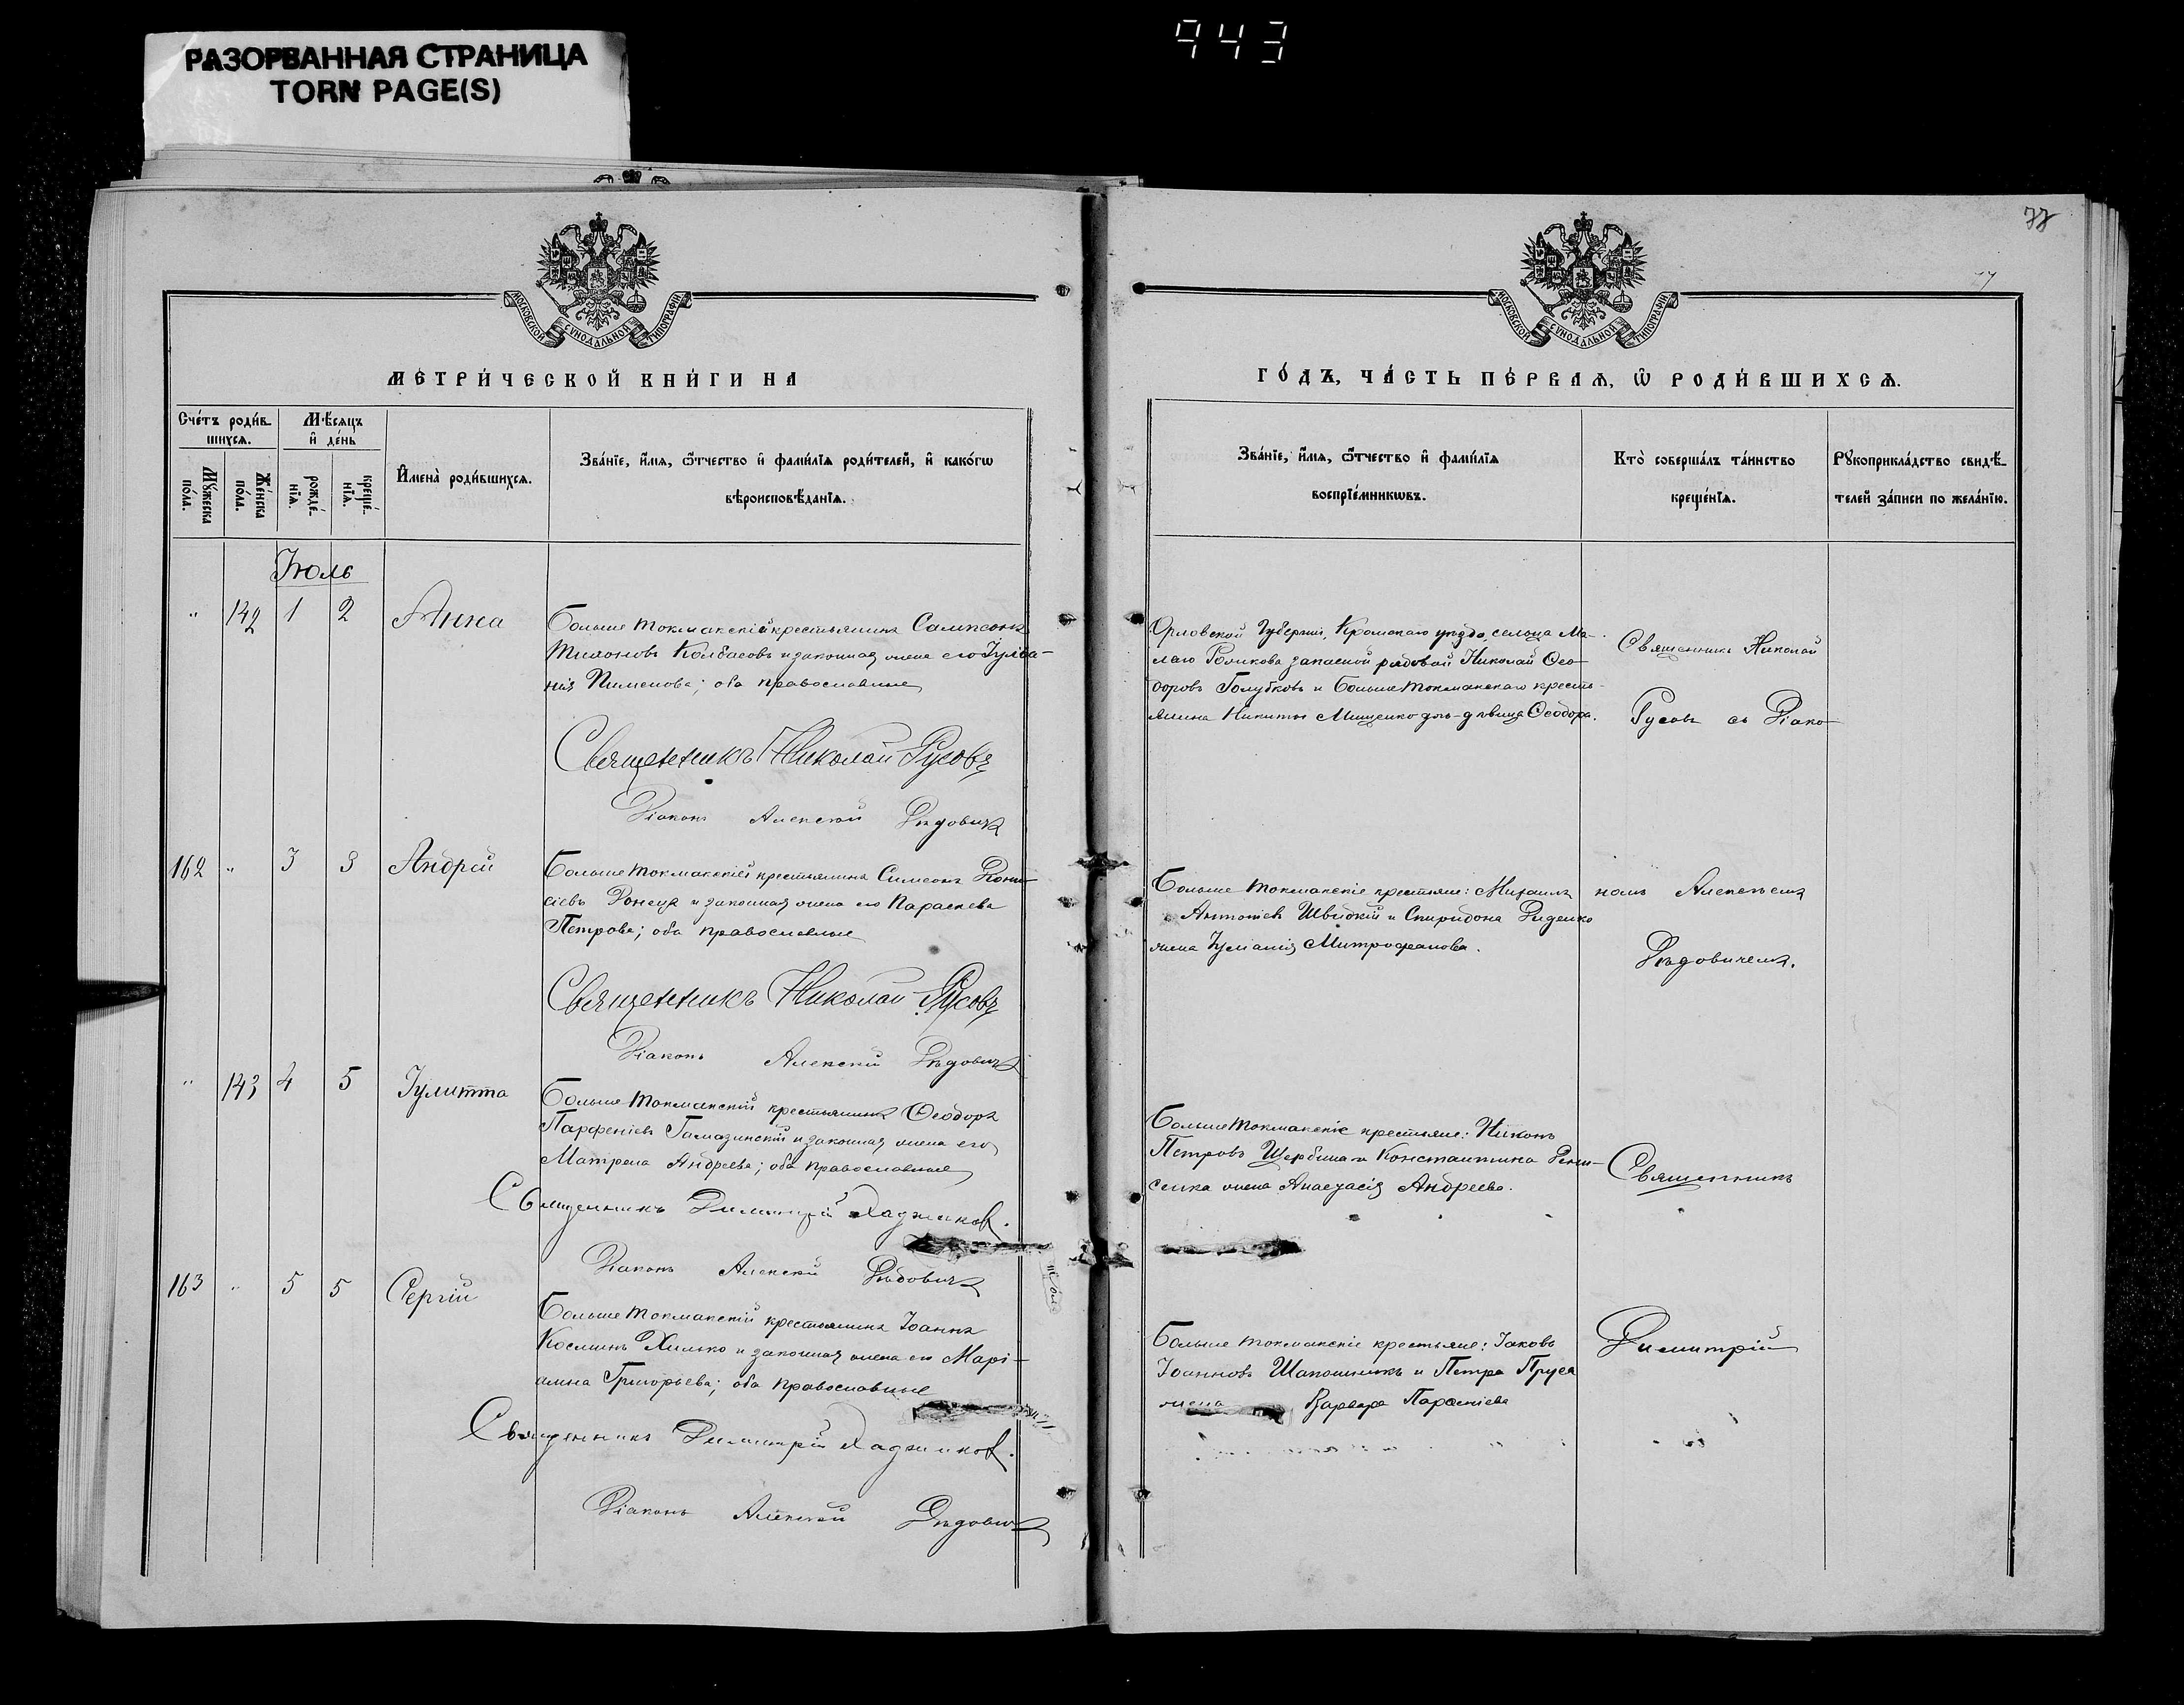 943
РАЗОРВАННАЯ СТРАНИЦА
TORN PAGE(S)
МОСКОВСКОЙ СѴНОДАЛЬНОЙ ТИПОГРАФІИ
МЕТРИ́ЧЕСКОЙ КНИ́ГИ НА
Сче́тъ роди́в-
шихсѧ.
Мѣ́сяцъ
и҆ де́нь
Мꙋ́жеска
по́ла.
Же́нска
по́ла.
рожде́-
нїѧ.
креще́-
нїѧ.
И҆мена̀ роди́вшихсѧ.
Зва́нїе, и҆́мѧ, ѻ҆́тчество и҆ фами́лїѧ роди́телей, и҆ како́гѡ
вѣроисповѣ́данїѧ.
Іюль
" 142 1 2 Анна
Больше Токмакскій крестьянинъ Сампсонъ
Тихоновъ Колбасовъ и законная жена его Іулiа-
нія Пименова; оба православные
Священникъ Николай Русовъ
Діаконъ Алексій Дѣдовичъ
162 " 3 3 Андрей
Больше Токмакскій крестьянинъ Симеонъ Діони-
сіевъ Донецъ и законная жена его Параскева
Петрова; оба православные
Священникъ Николай Русовъ
Діаконъ Алексій Дѣдовичъ
" 143 4 5 Іулитта
Больше Токмакскій крестьянинъ Ѳеодоръ
Парфеніевъ Гамазинскій и законная жена его
Матрена Андреева; оба православные
Священникъ Димитрій Хаджиновъ.
Діаконъ Алексій Дѣдовичъ
163 " 5 5 Сергій
Больше Токмакскій крестьянинъ Іоаннъ
Косминъ Хилько и законная жена его Марі-
анна Григорьева; оба православные
Священникъ Димитрій Хаджиновъ.
Діаконъ Алексій Дѣдовичъ
77
МОСКОВСКОЙ СѴНОДАЛЬНОЙ ТИПОГРАФІИ
ГО́ДЪ, ЧА́СТЬ ПЕ́РВАѦ, Ѡ҆ РОДИ́ВШИХСѦ.
Зва́нїе, и҆́мѧ, ѻ҆́тчество и҆ фами́лїѧ
воспрїе́мникѡвъ.
Кто̀ соверша́лъ та́инство
креще́нїѧ.
Рꙋкоприкла́дство свидѣ́-
телей за́писи по жела́нїю.
Орловской Губерніи, Кромскаго уѣзда, сельца Ма-
лаго Роликова запасной рядовой Николай Ѳео-
доровъ Голубковъ и Больше Токмакскаго кресть-
янина Никиты Мищенко дочь-дѣвица Ѳеодора.
Священникъ Николай
Русовъ съ Діако-
Больше Токмакскіе крестьяне: Михаилъ
Антоніевъ Швидкій и Спиридона Диденко
жена Іуліанія Митрофанова.
номъ Алексѣемъ
Дѣдовичемъ.
Больше Токмакскіе крестьяне: Никонъ
Петровъ Щербина и Константина Дени-
сенка жена Анастасія Андреева.
Священникъ
Больше Токмакскіе крестьяне: Іаковъ
Іоанновъ Шапошникъ и Петра Пруса
жена Варвара
Димитрій